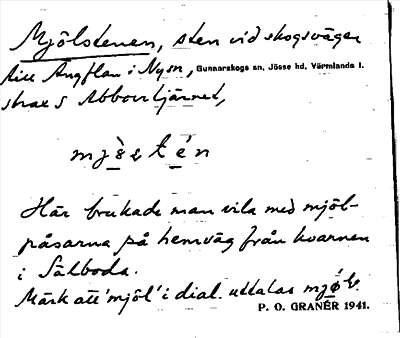 Mjölstenen, sten vid skogsvägen
till Ängflan i Nysn, Gunnarskogs sn, Jösse hd, Värmlands l.
strax S Abbortjärnet,
Här brukade man vila med mjöl-
påsarna på hemväg från kvarnen
i Sälboda.
Märk att 'mjöl' i dial. uttalas
P. O. GRANÉR 1941.